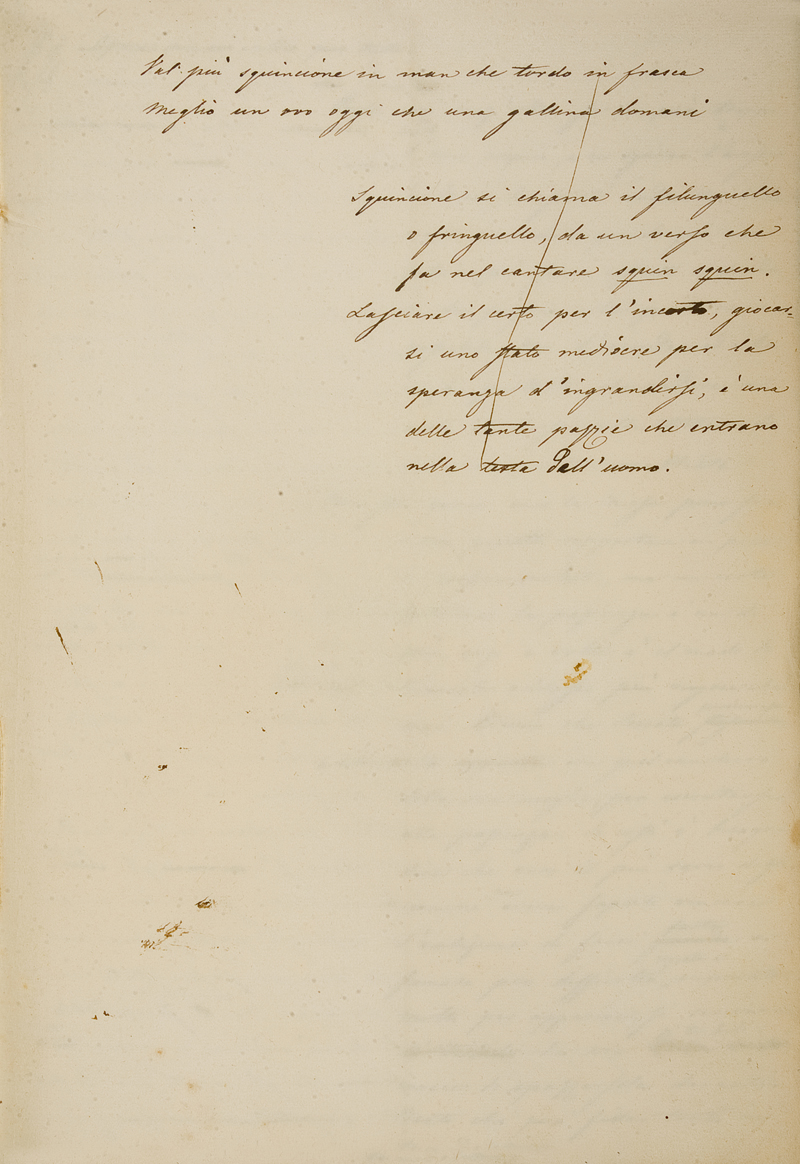 Val più squincione in man che tordo in frasca
Meglio un ovo oggi che una gallina domani
Squincione si chiama il filunguello
o fringuello, da un verso che
fa nel cantare squin squin.
Lasciare il certo per l'incerto, giocar=
si uno stato mediocre per la
speranza d'ingrandirsi, è una
delle tante pazzie che entrano
nella testa dall'uomo.